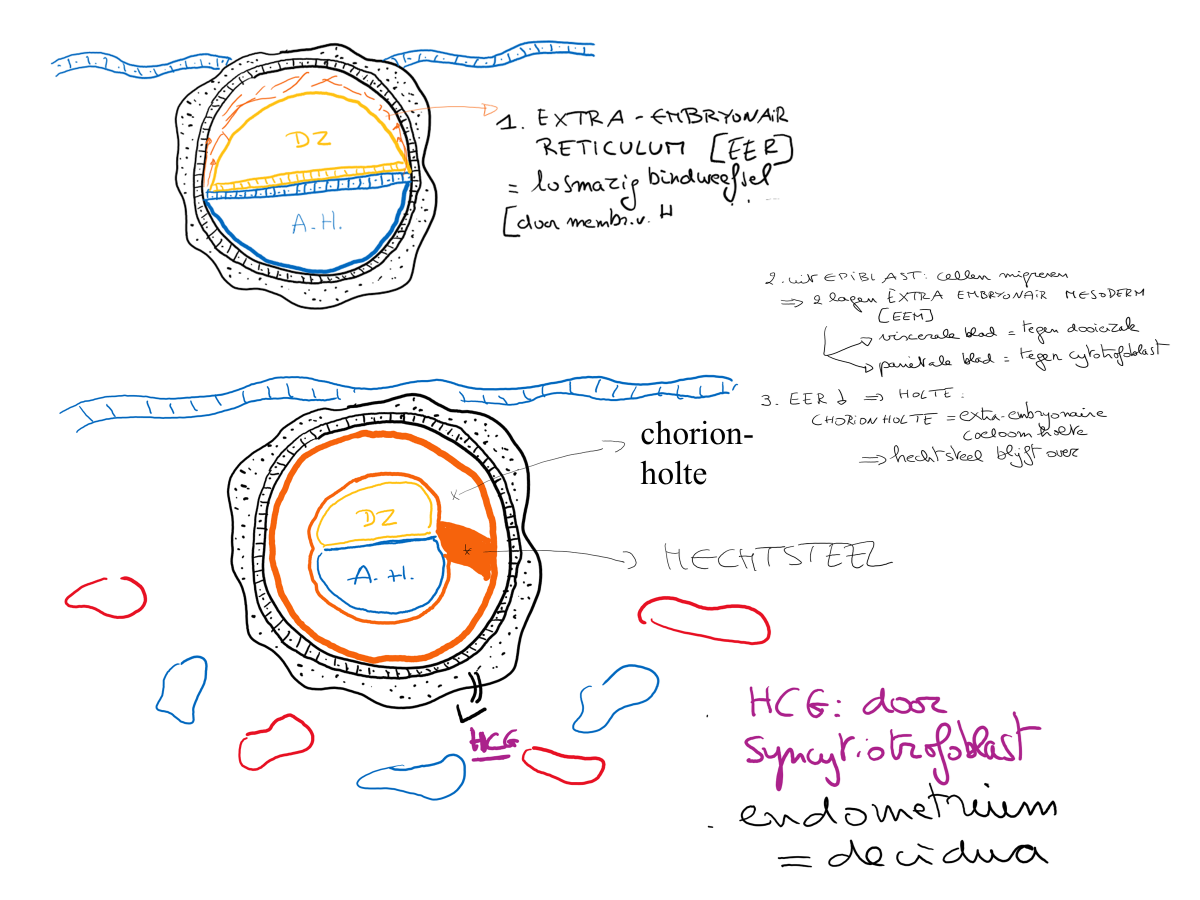 DZ
A.H.
1. EXTRA-EMBRYONAIR
RETICULUM [EER]
= losmazig bindweefsel
[door membr. v. H
2. uit EPIBLAST: cellen migreren
⇒ 2 lagen EXTRA EMBRYONAIR MESODERM
[EEM]
→ viscerale blad = tegen dooierzak
→ parietale blad = tegen cytotrofoblast
3. EER ↓ ⇒ HOLTE:
CHORIONHOLTE = extra-embryonaire
coeloomholte
⇒ hechtsteel blijft over
chorion-
holte
DZ
A.H.
HECHTSTEEL
HCG
HCG: door
syncytiotrofoblast
. endometrium
= decidua